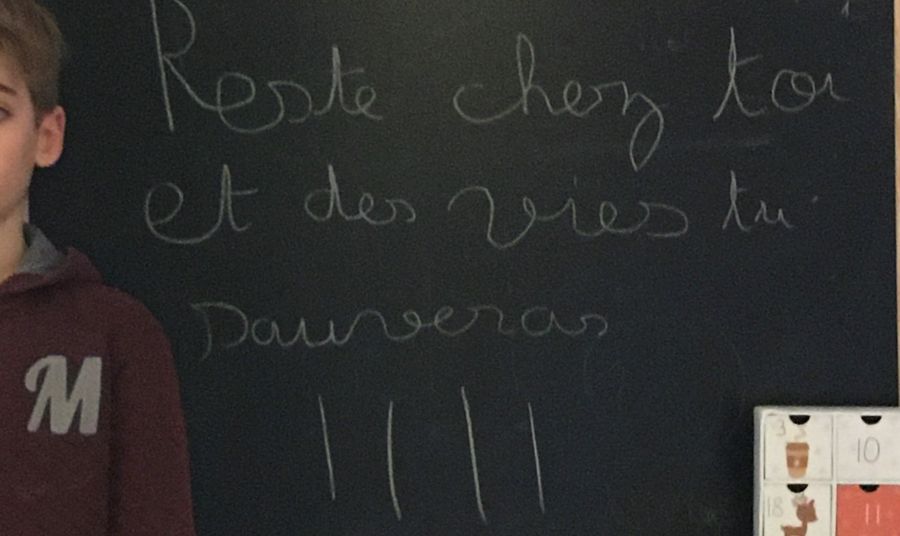 Reste chez toi
et des vies tu
sauveras
||||
M
3
10
18
11